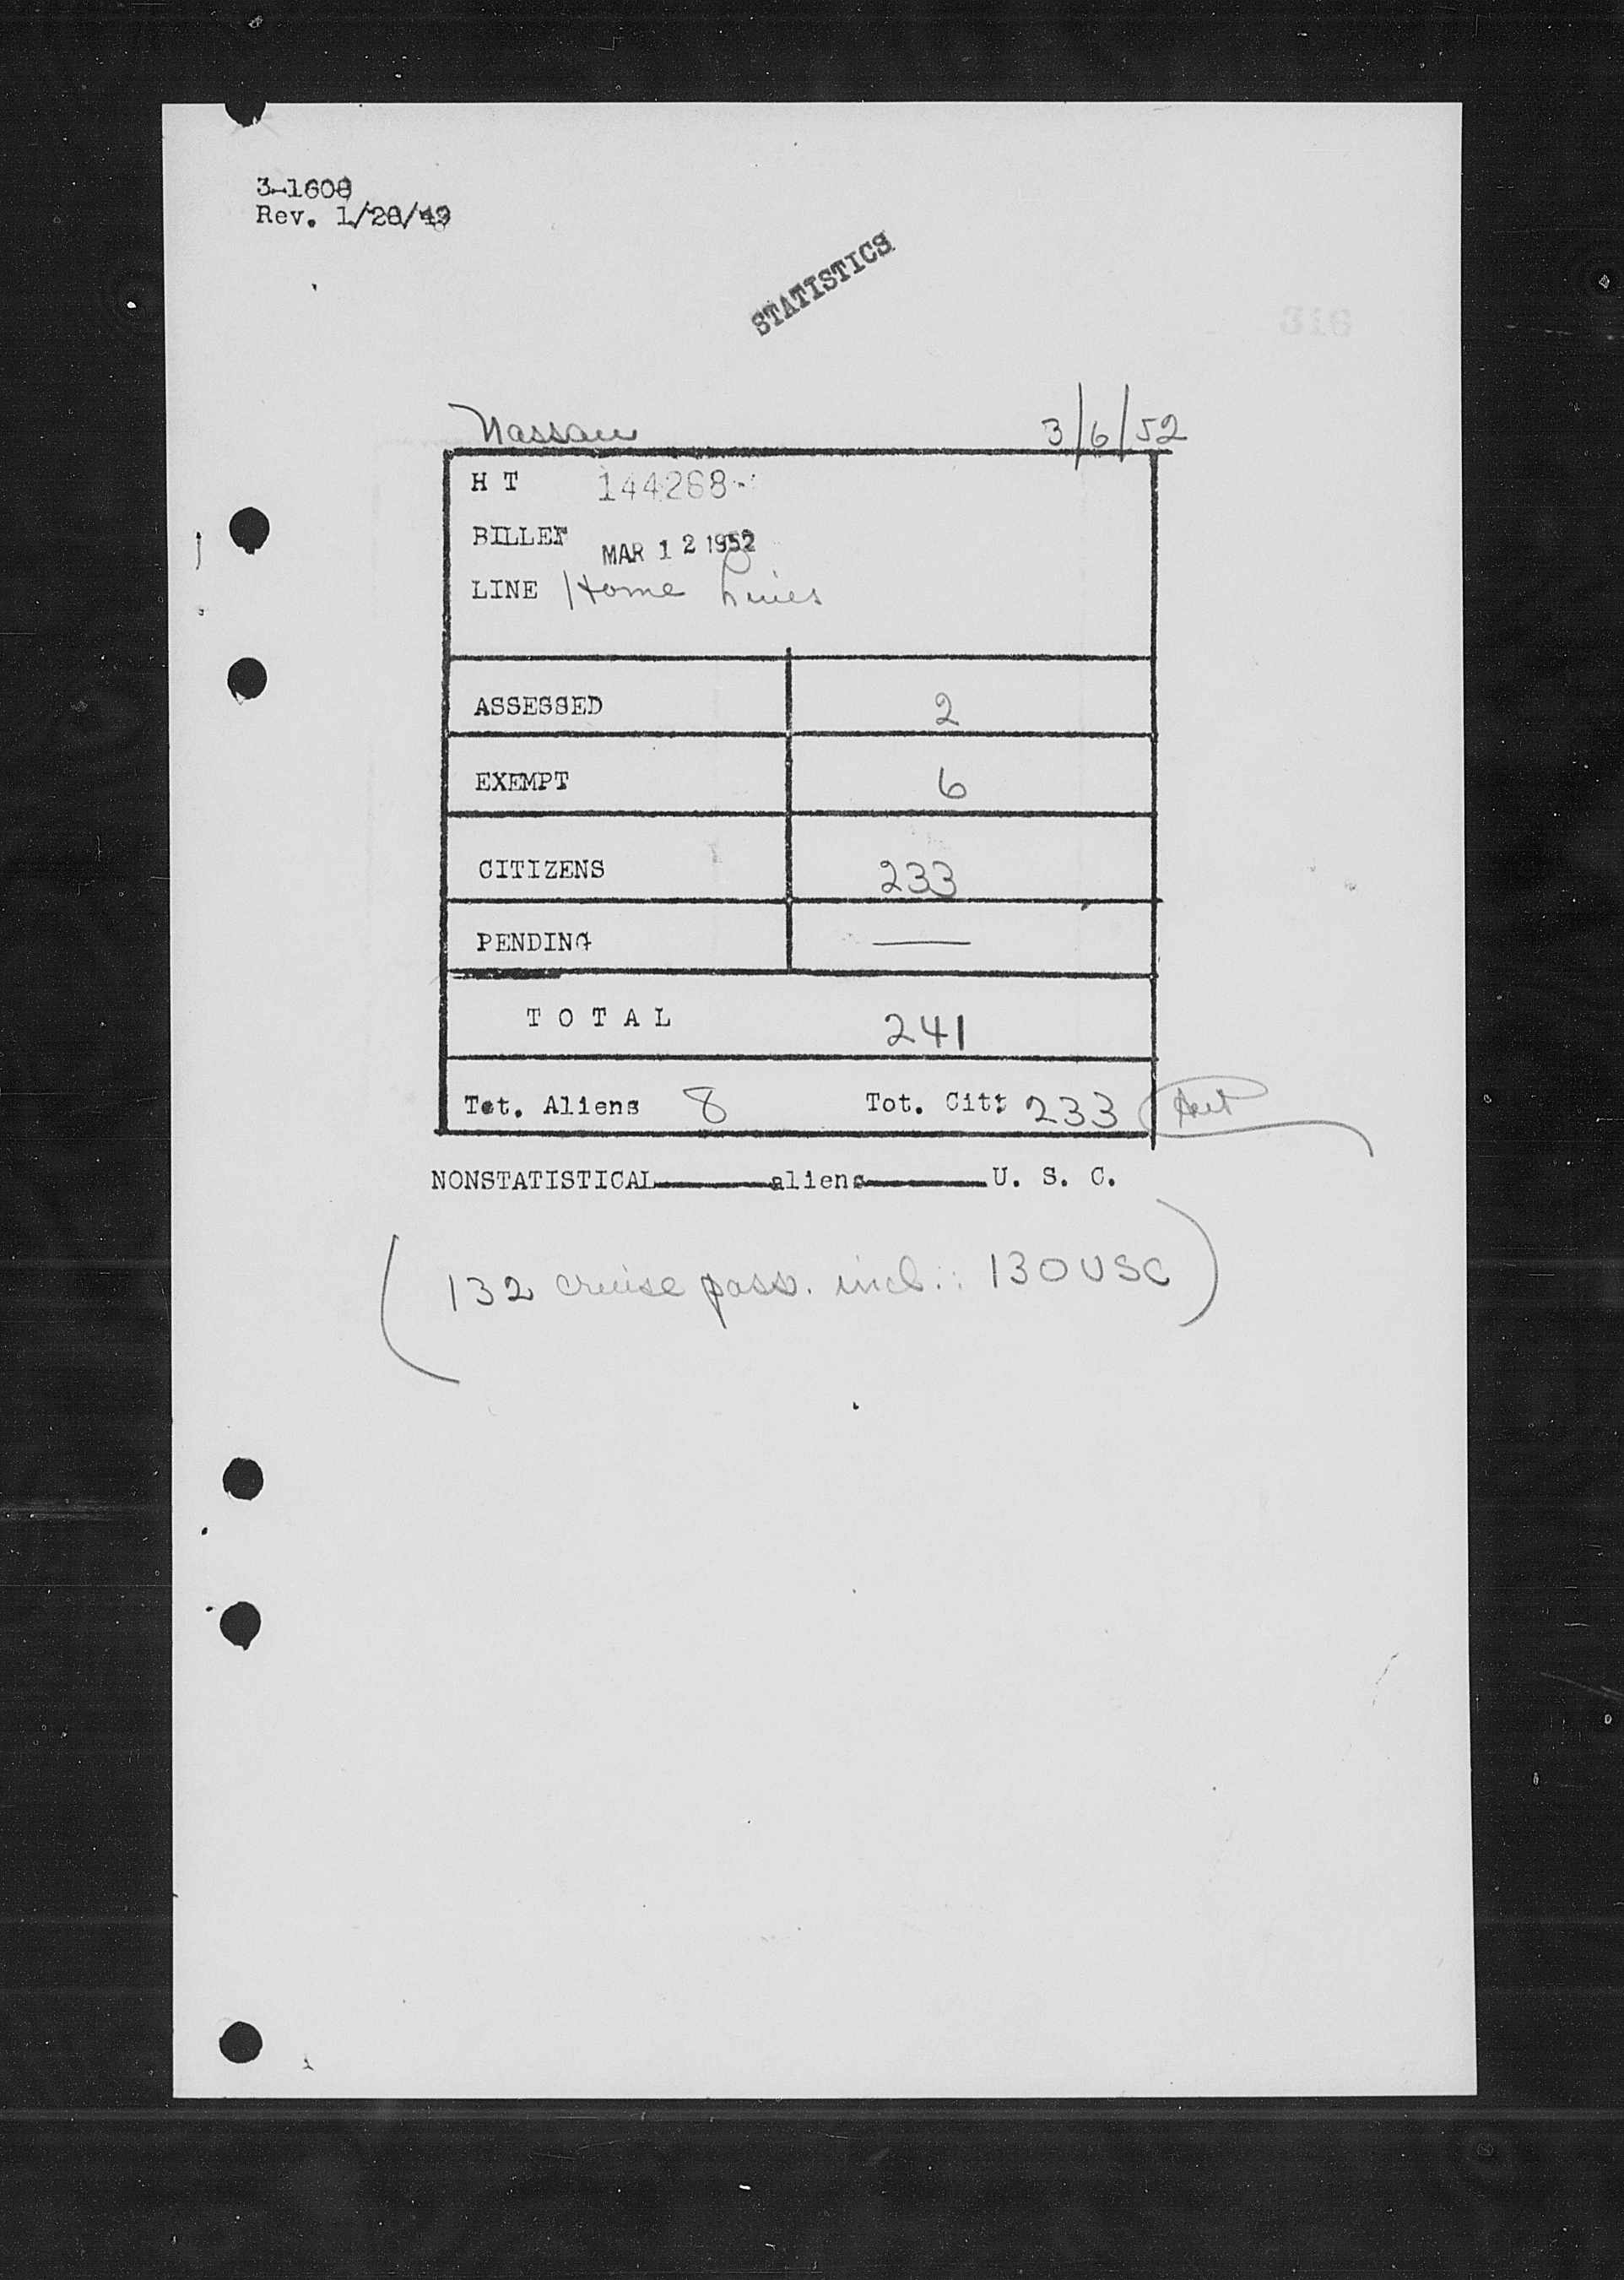 3-1608
Rev. 1/28/49
STATISTICS
Nassau 3/6/52
H T 144268
BILLET MAR 12 1952
LINE Home Lines
ASSESSED 2
EXEMPT 6
CITIZENS 233
PENDING —
T O T A L 241
Tot. Aliens 8 Tot. Cit: 233
NONSTATISTICAL______aliens______U. S. C.
(132 cruise pass. incl.: 130 USC)